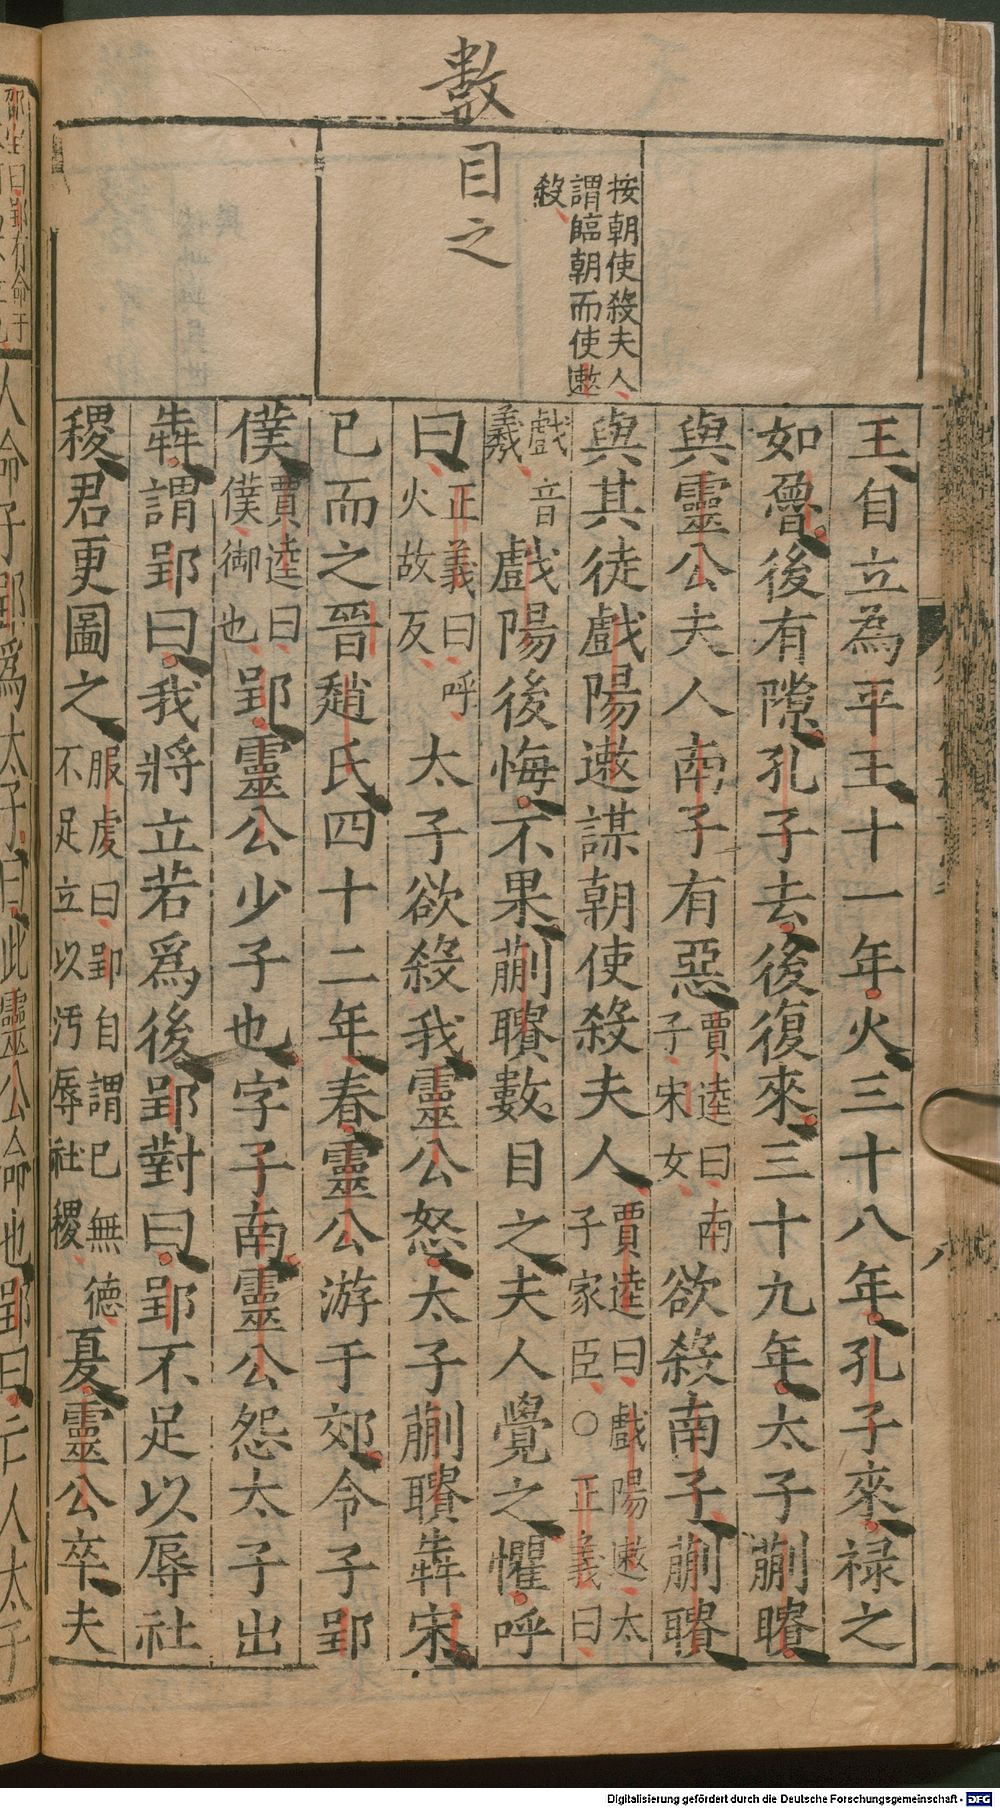 數
目之
按朝使殺夫人
謂臨朝而使遬
殺
王自立為平王十一年火三十八年孔子來禄之
如魯後有隙孔子去後復來三十九年太子蒯聵
與靈公夫人南子有惡賈逵曰南子宋女欲殺南子蒯聵
與其徒戲陽遬謀朝使殺夫人賈逵曰戲陽遬太子家臣○正義曰
戲音義戲陽後悔不果蒯聵數目之夫人覺之懼呼
曰正義曰呼火故反太子欲殺我靈公怒太子蒯聵犇宋
已而之晉趙氏四十二年春靈公游于郊令子郢
僕賈逵曰僕御也郢靈公少子也字子南靈公怨太子出
犇謂郢曰我將立若爲後郢對曰郢不足以辱社
稷君更圖之服虔曰郢自謂已無德不足立以污辱社稷夏靈公卒夫
人命子郢爲太子曰此靈公命也郢曰亡人太子
Digitalisierung gefördert durch die Deutsche Forschungsgemeinschaft - DFG